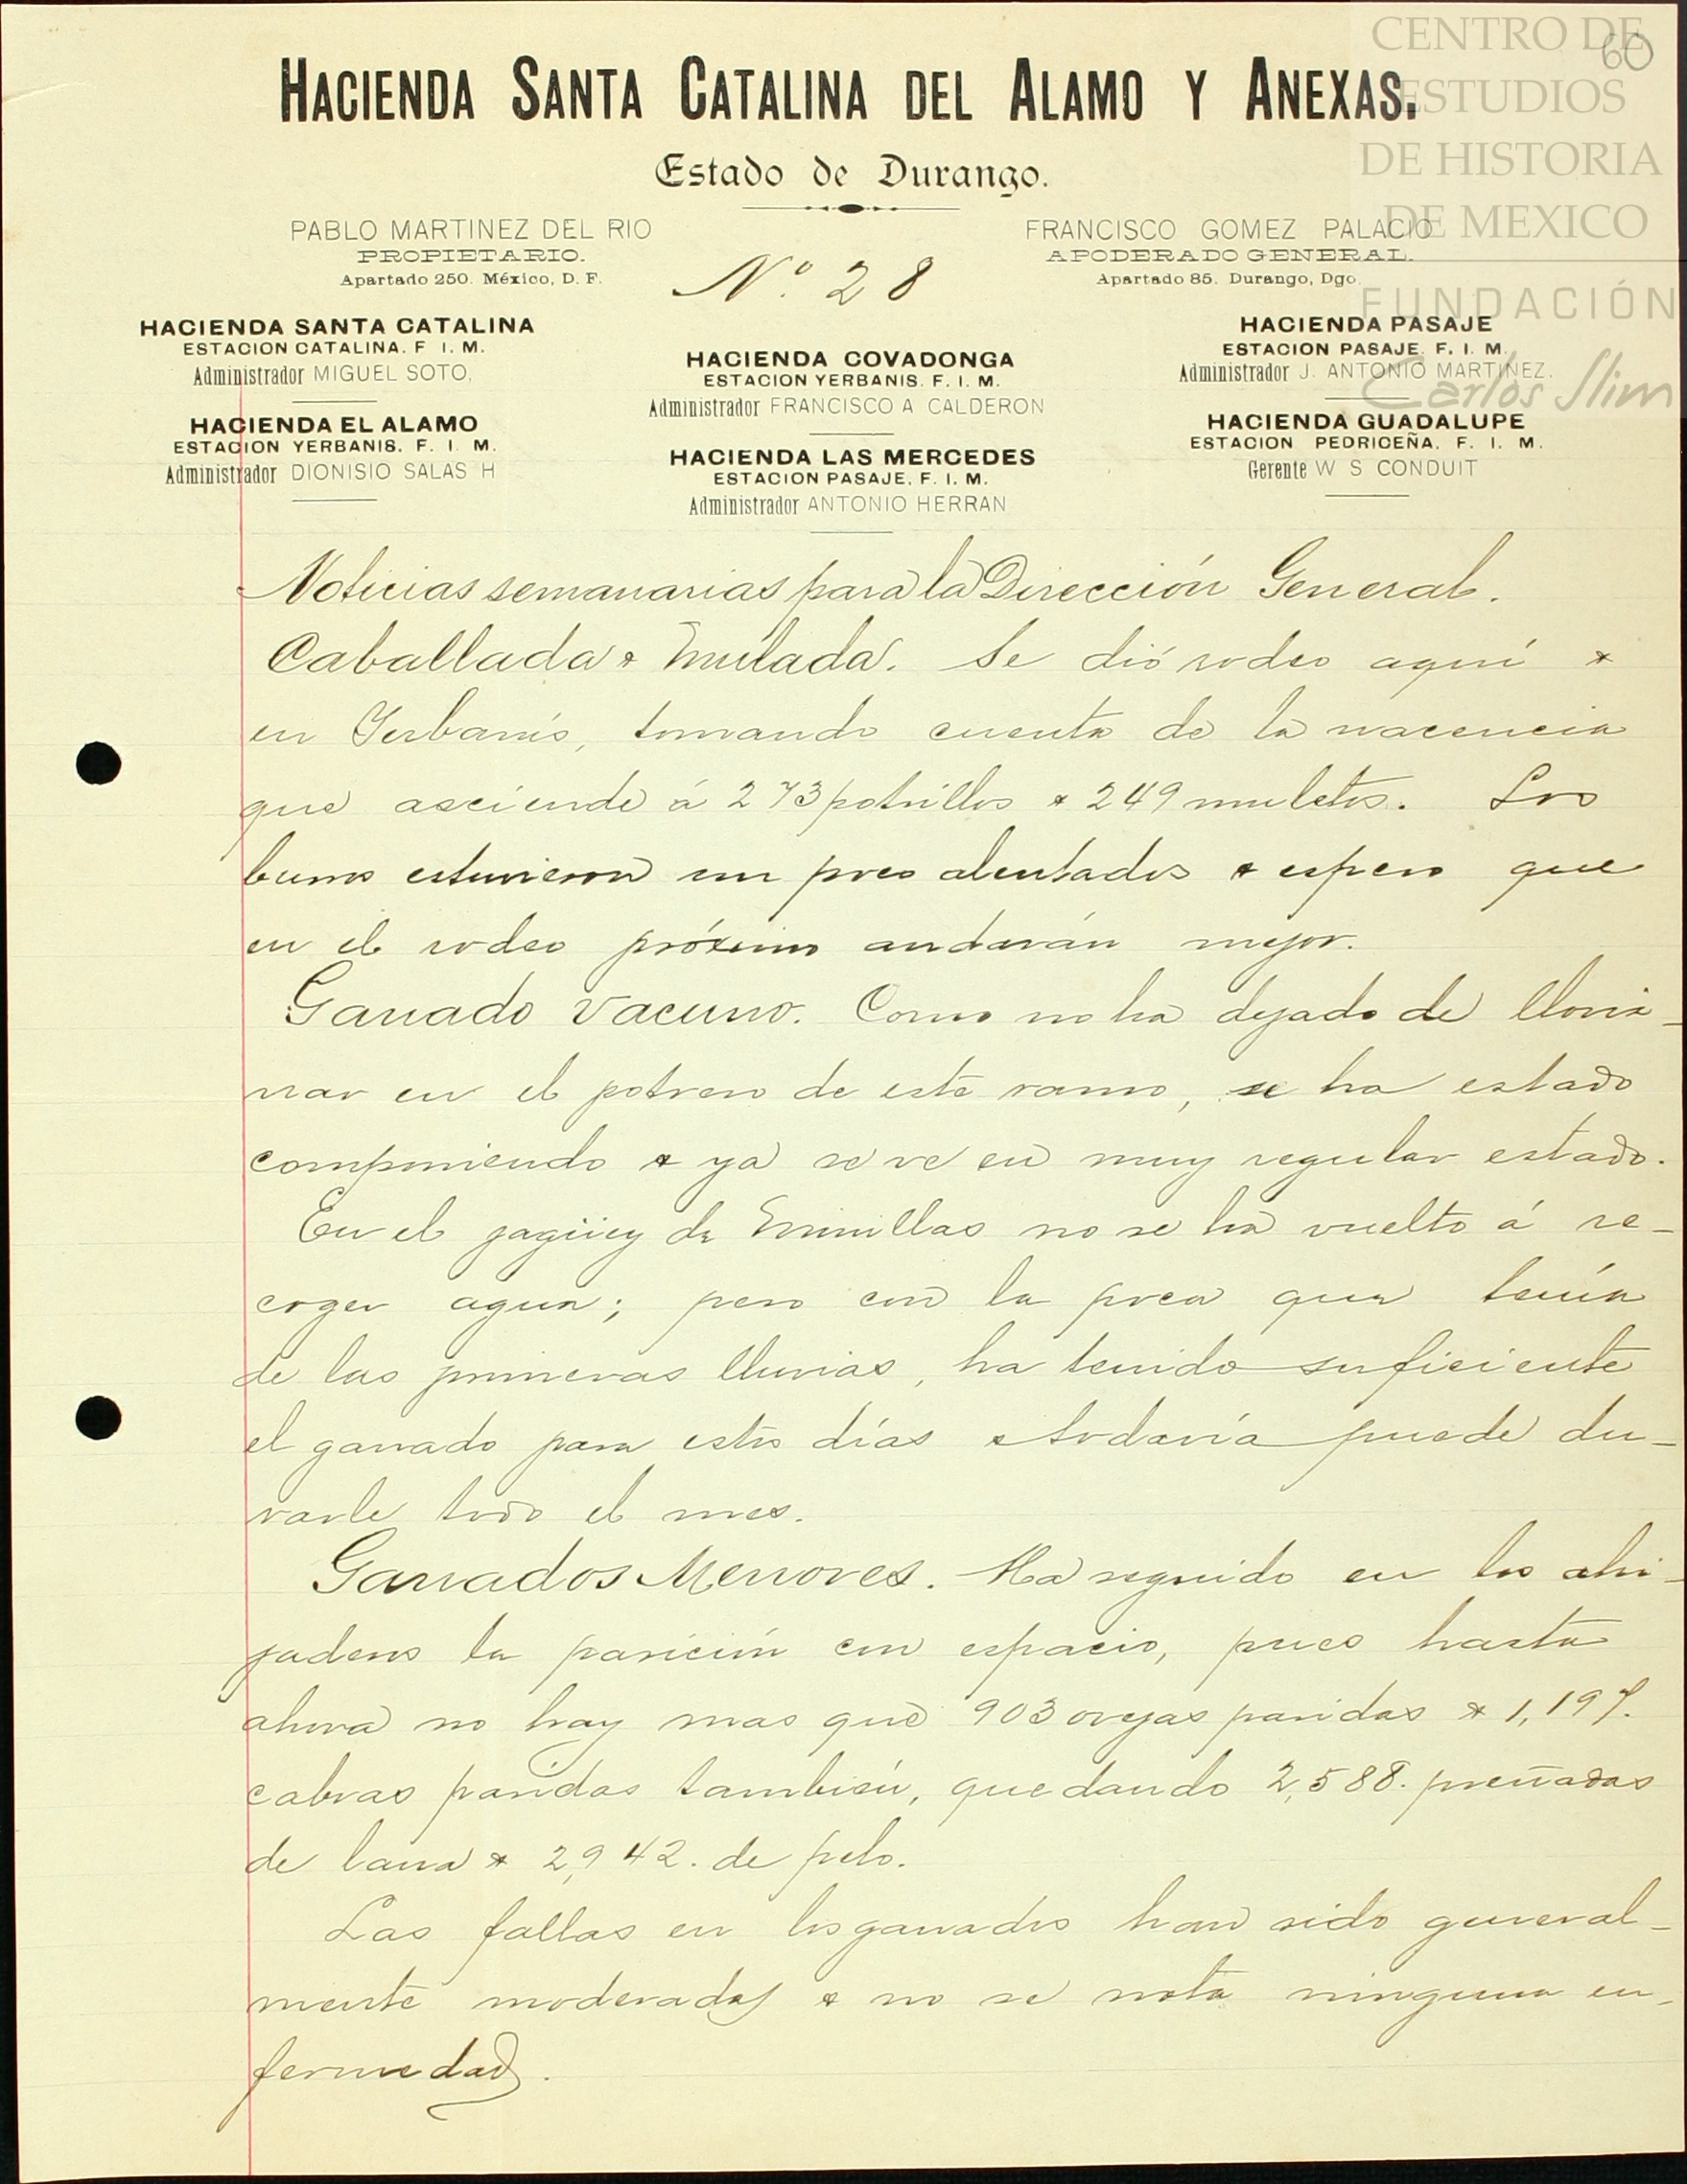 60
CENTRO DE
ESTUDIOS
DE HISTORIA
DE MEXICO
FUNDACIÓN
Carlos Slim
HACIENDA SANTA CATALINA DEL ALAMO Y ANEXAS.
Estado de Durango.
PABLO MARTINEZ DEL RIO
PROPIETARIO.
Apartado 250. México, D. F.
Nº. 28
FRANCISCO GOMEZ PALACIO
APODERADO GENERAL.
Apartado 85. Durango, Dgo.
HACIENDA SANTA CATALINA
ESTACION CATALINA. F. I. M.
Administrador MIGUEL SOTO.
HACIENDA EL ALAMO
ESTACION YERBANIS. F. I. M.
Administrador DIONISIO SALAS H
HACIENDA COVADONGA
ESTACION YERBANIS. F. I. M.
Administrador FRANCISCO A CALDERON
HACIENDA LAS MERCEDES
ESTACION PASAJE. F. I. M.
Administrador ANTONIO HERRAN
HACIENDA PASAJE
ESTACION PASAJE. F. I. M.
Administrador J. ANTONIO MARTINEZ.
HACIENDA GUADALUPE
ESTACION PEDRICEÑA. F. I. M.
Gerente W S CONDUIT
Noticias semanarias para la Dirección General.
Caballada & Mulada. Se dió rodeo aquí &
en Yerbanís, tomando cuenta de la nacencia
que asciende á 273 potrillos & 249 muletos. Los
burros estuvieron un poco alentados & espero que
en el rodeo próximo andarán mejor.
Ganado Vacuno. Como no ha dejado de llovis-
nar en el potrero de este ramo, se ha estado
componiendo & ya se ve en muy regular estado.
En el jagüey de Eminillas no se ha vuelto á re-
coger agua; pero con la poca que tenía
de las primeras lluvias, ha tenido suficiente
el ganado para estos días & todavía puede du-
rarle todo el mes.
Ganados Menores. Ha seguido en los ahi-
jaderos la parición con espacio, pues hasta
ahora no hay mas que 903 ovejas paridas & 1,197.
cabras paridas también, quedando 2,588. preñadas
de lana & 2,942. de pelo.
Las fallas en los ganados han sido general-
mente moderadas & no se nota ninguna en-
fermedad.